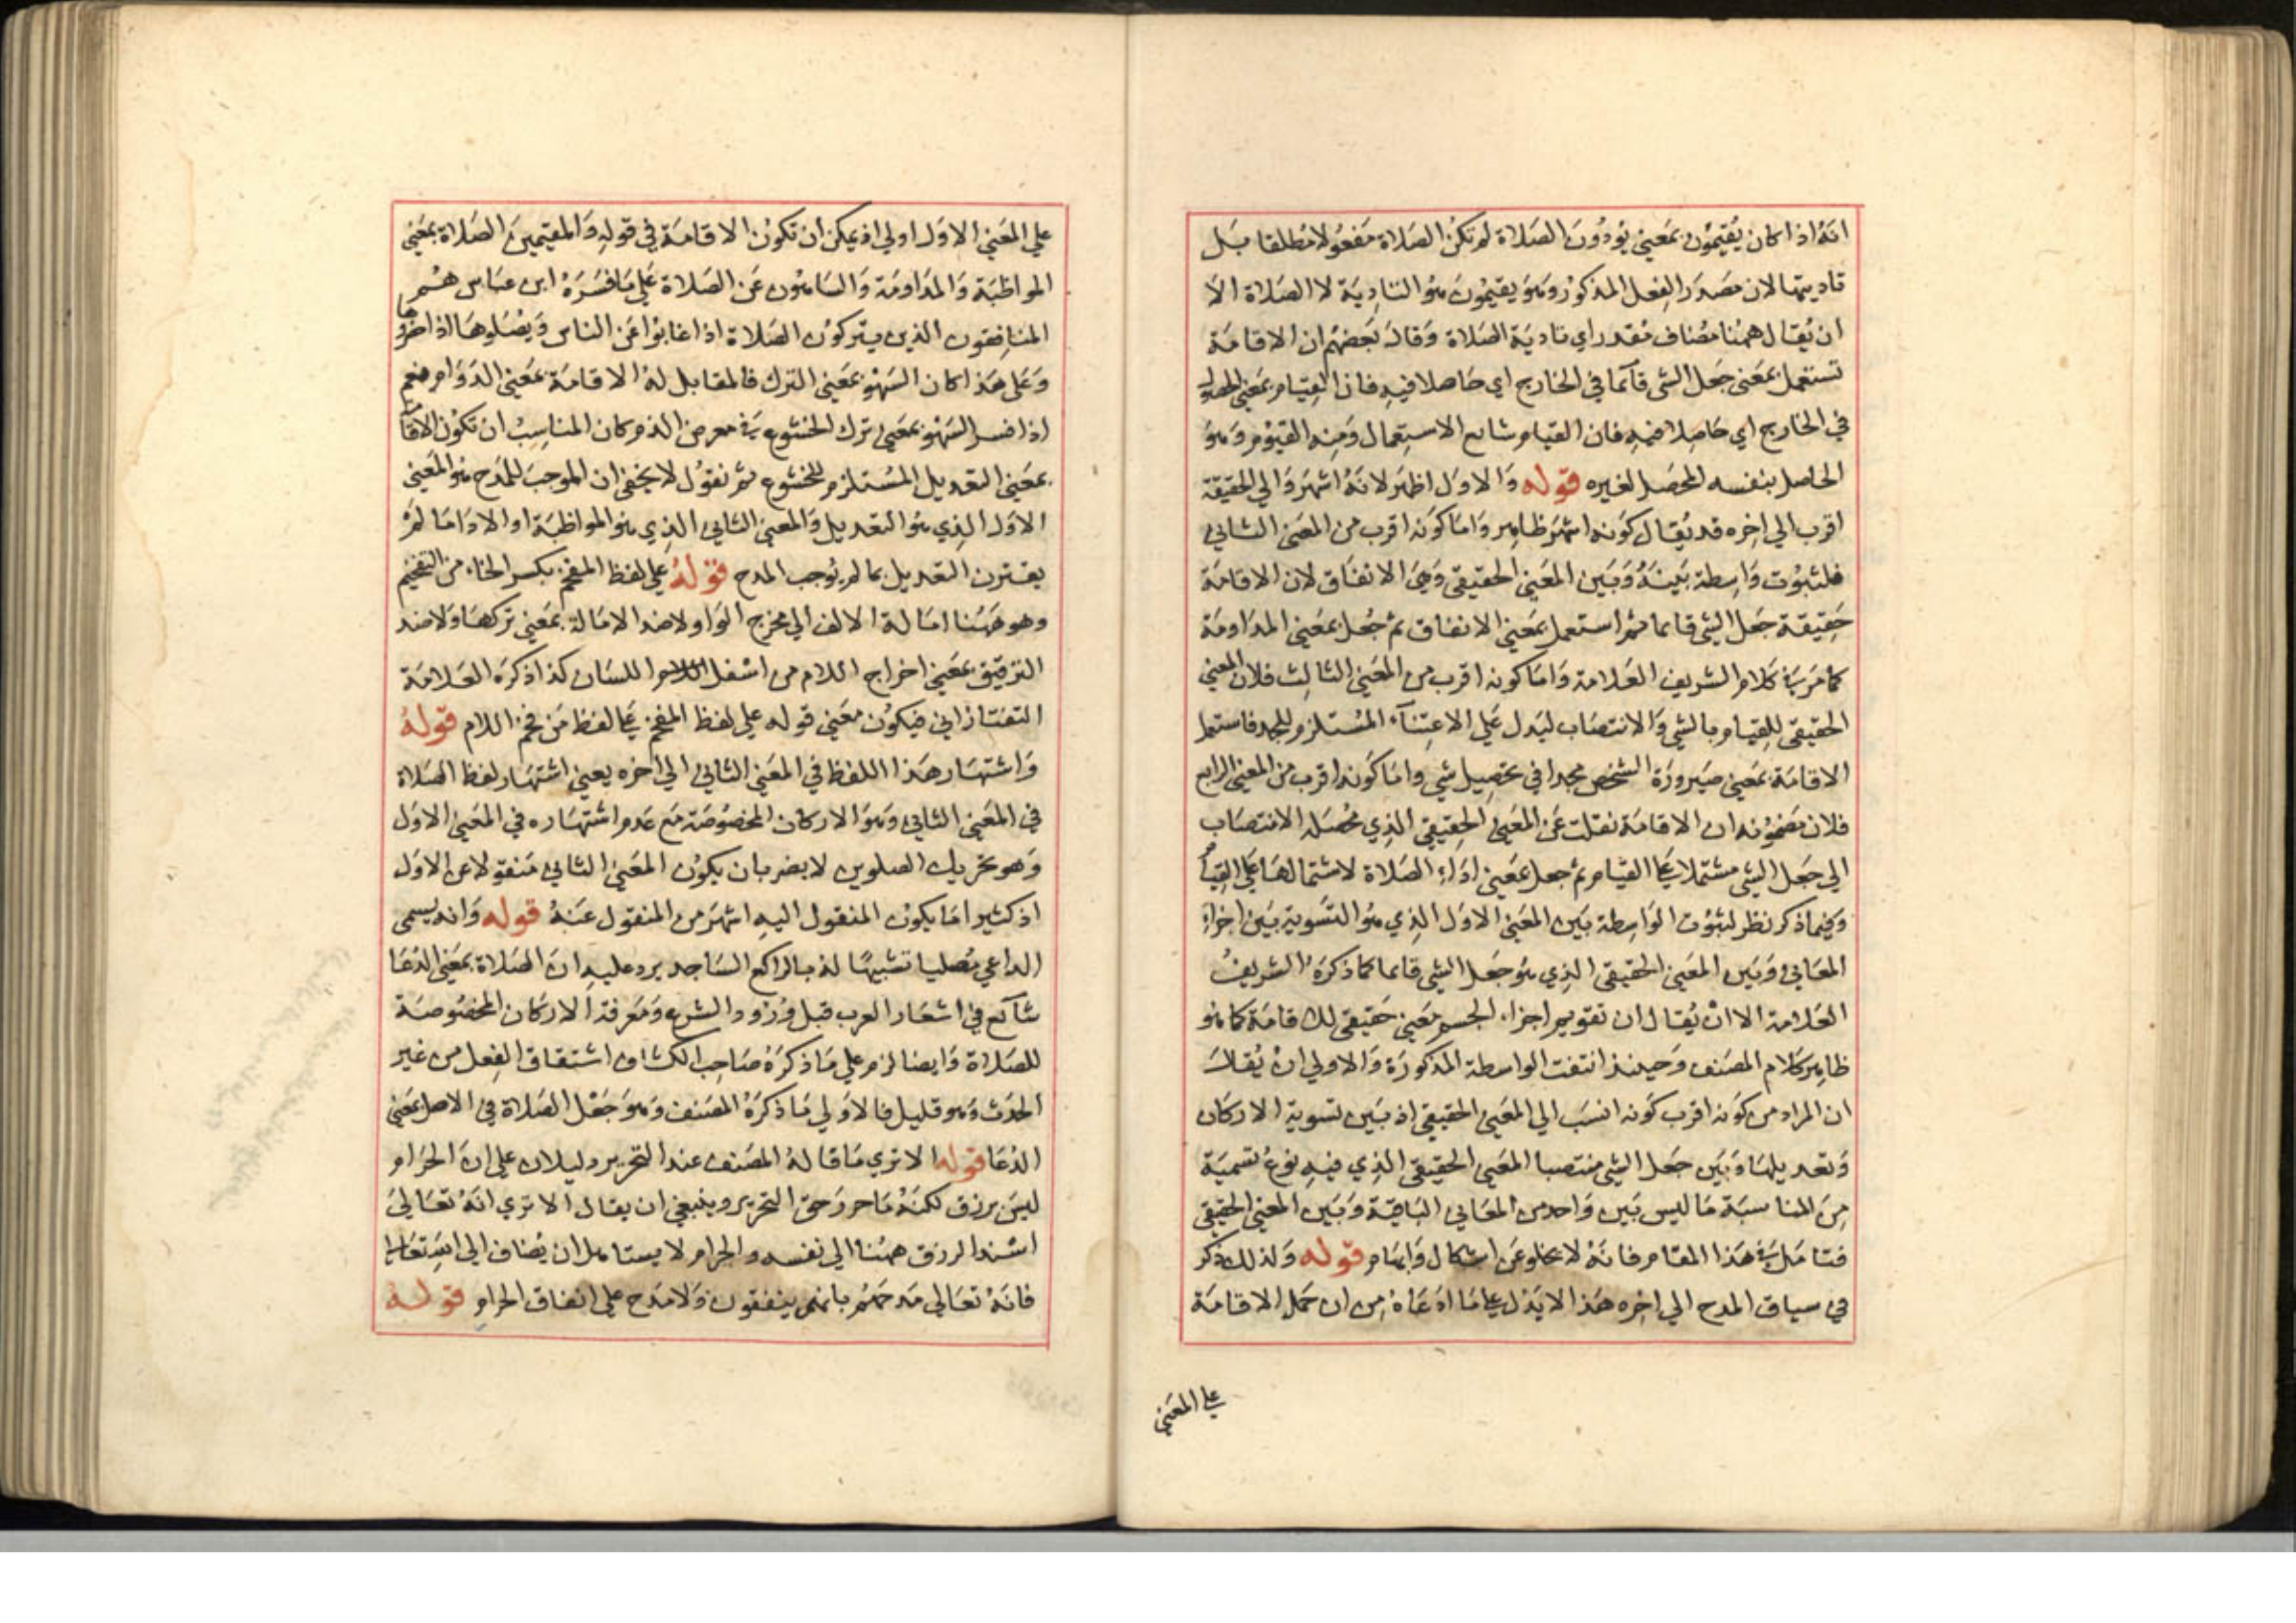 انه اذا كان يقيمون بمعنى يودون الصلاة لم تكن الصلاة مفعولا مطلقا بل
تاديتها لان مصدر الفعل المذكور وهو يقيمون هو التادية لا الصلاة الا
ان يقال ههنا مضاف مقدر اي تادية الصلاة وقال بعضهم ان الاقامة
تستعمل بمعنى جعل الشي قآئما في الخارج اي حاصلا فيه فان القيام بمعنى الحصول
في الخارج اي حاصلا فيه فان القيام شايع الاستعمال ومنه القيوم وهو
الحاصل بنفسه المحصل لغيره قوله والاول اظهر لانه اشهر والي الحقيقة
اقرب الي اخره قد يقال كونه اشهر ظاهر واما كونه اقرب من المعنى الثاني
فلثبوت واسطة بينه وبين المعني الحقيقي وهي الانفاق لان الاقامة
حقيقة جعل الشي قايما ثم استعمل بمعني الانفاق ثم جعل بمعني المداومة
كما مر في كلام الشريف العلامة واما كونه اقرب من المعني الثالث فلان المعني
الحقيقي للقيام بالشي والانتصاب ليدل علي الاعتنآء المستلزم للجد فاستعمل
الاقامة بمعني صيرورة الشخص مجدا في تحصيل شي واما كونه اقرب من المعني الرابع
فلان مضمونه ان الاقامة نقلت عن المعني الحقيقي الذي محصله الانتصاب
الي جعل الشي مشتملا علي القيام ثم جعل بمعني اداء الصلاة لاشتمالها علي القيام
وفيما ذكر نظر لثبوت الواسطة بين المعني الاول الذي هو التسوية بين اجزاء
المعاني وبين المعني الحقيقي الذي هو جعل الشي قايما كما ذكره الشريف
العلامة الا ان يقال ان تقويم اجزاء الجسم معني حقيقي للاقامة كما هو
ظاهر كلام المصنف وحينئذ انتفت الواسطة المذكورة والاولي ان يقال
ان المراد من كونه اقرب كونه انسب الي المعني الحقيقي اذ بين تسوية الاركان
وتعديلها وبين جعل الشي منتصبا المعني الحقيقي الذي فيه نوع تسمية
من المناسبة ما ليس بين واحد من المعاني الباقية وبين المعني الحقيقي
فتامل في هذا المقام فانه لا يخلو عن اشكال وابهام قوله ولذلك ذكر
في سياق المدح الي اخره هذا لا يدل علي ما ادعاه من ان حمل الاقامة
علي المعني
علي المعني الاول اولي اذ يمكن ان تكون الاقامة في قوله والمقيمين الصلاة بمعني
المواظبة والمداومة والساهون عن الصلاة علي ما فسره ابن عباس هم
المنافقون الذين يتركون الصلاة اذا غابوا عن الناس ويصلوها اذا حضروها
وعلي هذا كان السهو بمعني الترك فالمقابل له الاقامة بمعني الدوام نعم
اذا فسر السهو بمعني ترك الخشوع في معرض الذم كان المناسب ان تكون الاقامة
بمعني التعديل المستلزم للخشوع ثم نقول لا يخفي ان الموجب للمدح هو المعني
الاول الذي هو التعديل والمعني الثاني الذي هو المواظبة او الادا ما لم
يقترن التعديل بما لم يوجب المدح قوله علي لفظ المفخم بكسر الخاء من التفخيم
وهو ههنا امالة الالف الي مخرج الواو لا ضد الامالة بمعني تركها ولا ضد
الترقيق بمعني اخراج اللام من اسفل اللسان كذا ذكره العلامة
التفتازاني فيكون معني قوله علي لفظ المفخم علي لفظ من فخم اللام قوله
واشتهار هذا اللفظ في المعني الثاني الي اخره يعني اشتهار لفظ الصلاة
في المعني الثاني وهو الاركان المخصوصة مع عدم اشتهاره في المعني الاول
وهو تحريك الصلوين لا يضر بان يكون المعني الثاني منقولا عن الاول
اذ كثيرا ما يكون المنقول اليه اشهر من المنقول عنه قوله وانه يسمي
الداعي مصليا تشبيها له بالراكع الساجد يرد عليه ان الصلاة بمعني الدعا
شآئع في اشعار العرب قبل ورود الشرع ومعرفة الاركان المخصوصة
للصلاة وايضا لزم علي ما ذكره صاحب الكشاف اشتقاق الفعل من غير
الحدث وهو قليل فالاولي ما ذكره المصنف وهو جعل الصلاة في الاصل بمعني
الدعا قوله الا تري ما قاله المصنف عند التحرير دليلان علي ان الحرام
ليس برزق لكنه ما حرر حق التحرير وينبغي ان يقال الا تري انه تعالي
اسند الرزق ههنا الي نفسه والحرام لا يستاهل ان يضاف الي الله تعالي
فانه تعالي مدحهم بانهم ينفقون ولا مدح علي انفاق الحرام قوله